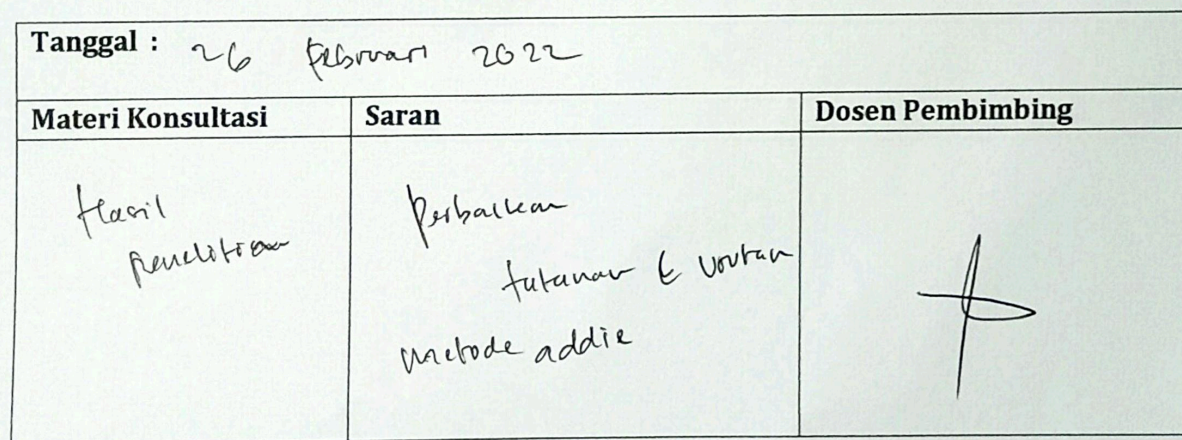 Tanggal : 26 Februari 2022
Materi Konsultasi Saran Dosen Pembimbing
Hasil
penelitian
Perbaikan
tatanan & urutan
metode addie